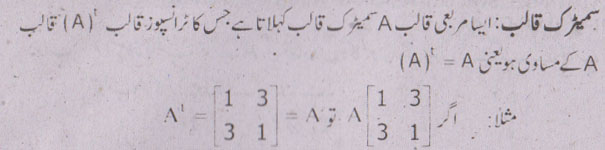 سمیٹرک قالب: ایسا مربعی قالب A سمیٹرک قالب کہلاتا ہے جس کا ٹرانسپوز قالب (A)ᵗ قالب
A کے مساوی ہو یعنی (A)ᵗ = A
مثلاً: اگر A [1 3; 3 1] تو Aᵗ = [1 3; 3 1] = A